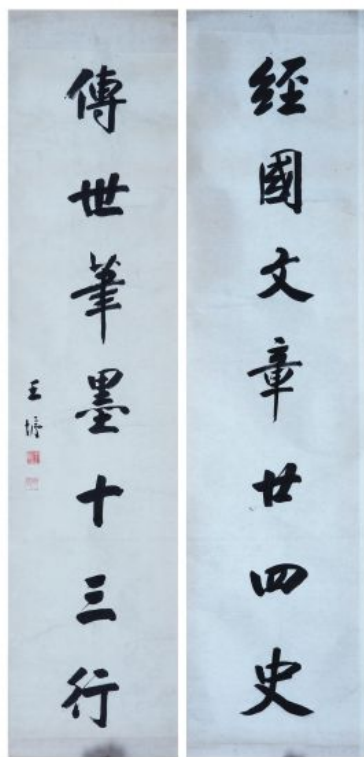 經國文章廿四史
傳世筆墨十三行
王